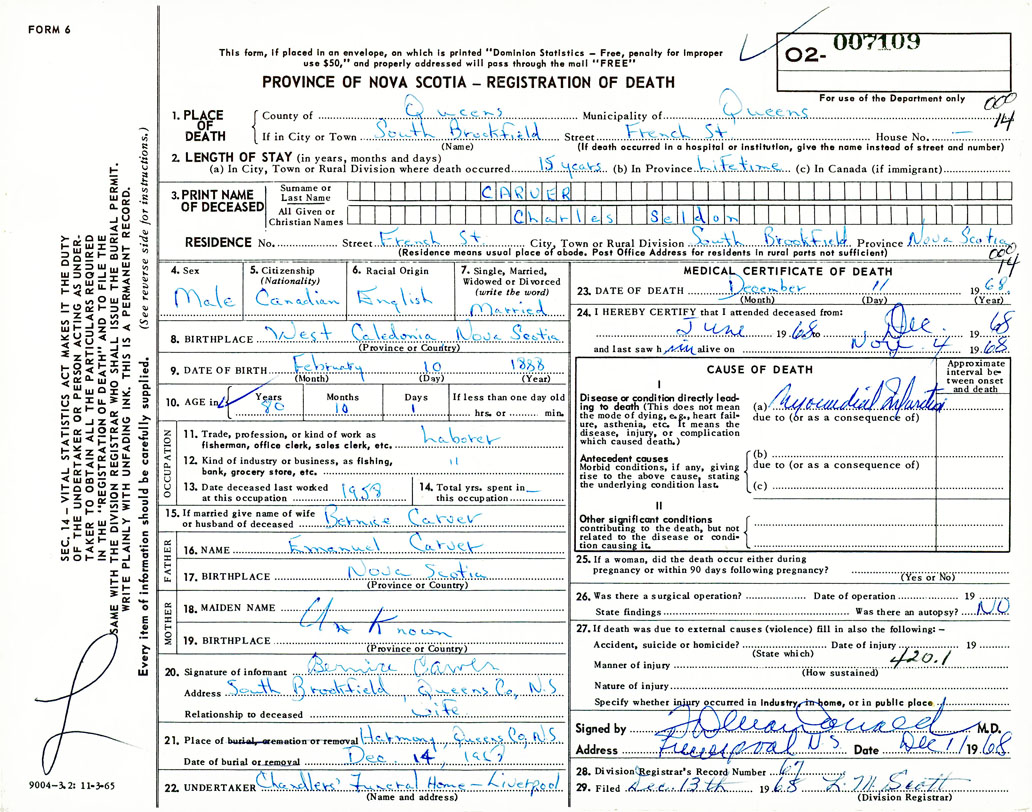 FORM 6
This form, if placed in an envelope, on which is printed "Dominion Statistics – Free, penalty for improper
use $50," and properly addressed will pass through the mail "FREE"
PROVINCE OF NOVA SCOTIA – REGISTRATION OF DEATH
02- 007109
For use of the Department only
000
14
1. PLACE OF DEATH
County of Queens Municipality of Queens
If in City or Town South Brookfield Street French St House No. —
(Name) (If death occurred in a hospital or institution, give the name instead of street and number)
2. LENGTH OF STAY (in years, months and days)
(a) In City, Town or Rural Division where death occurred 15 years (b) In Province Lifetime (c) In Canada (if immigrant)
3. PRINT NAME OF DECEASED
Surname or Last Name CARVER
All Given or Christian Names Charles Seldon
RESIDENCE No. Street French St City, Town or Rural Division South Brookfield Province Nova Scotia
(Residence means usual place of abode. Post Office Address for residents in rural parts not sufficient)
000
14
4. Sex
Male
5. Citizenship
(Nationality)
Canadian
6. Racial Origin
English
7. Single, Married,
Widowed or Divorced
(write the word)
Married
8. BIRTHPLACE West Caledonia Nova Scotia
(Province or Country)
9. DATE OF BIRTH February 10 1888
(Month) (Day) (Year)
10. AGE in
Years Months Days If less than one day old
80 10 1 hrs. or min.
OCCUPATION
11. Trade, profession, or kind of work as
fisherman, office clerk, sales clerk, etc. Laborer
12. Kind of industry or business, as fishing,
bank, grocery store, etc. "
13. Date deceased last worked
at this occupation 1958
14. Total yrs. spent in
this occupation —
15. If married give name of wife
or husband of deceased Bernice Carver
FATHER
16. NAME Emanuel Carver
17. BIRTHPLACE Nova Scotia
(Province or Country)
MOTHER
18. MAIDEN NAME Unknown
19. BIRTHPLACE
(Province or Country)
20. Signature of informant Bernice Carver
Address South Brookfield, Queens Co, N.S
Relationship to deceased wife
21. Place of burial, cremation or removal Harmony, Queens Co, N.S.
Date of burial or removal Dec. 14, 196
22. UNDERTAKER Chandlers' Funeral Home – Liverpool
(Name and address)
MEDICAL CERTIFICATE OF DEATH
23. DATE OF DEATH December 11 1968.
(Month) (Day) (Year)
24. I HEREBY CERTIFY that I attended deceased from:
June 1968 to Dec. 1968
and last saw him alive on Nov. 4 1968.
CAUSE OF DEATH
Approximate
interval be-
tween onset
and death
I
Disease or condition directly lead-
ing to death (This does not mean
the mode of dying, e.g., heart fail-
ure, asthenia, etc. It means the
disease, injury, or complication
which caused death.)
(a) Myocardial Infarction
due to (or as a consequence of)
Antecedent causes
Morbid conditions, if any, giving
rise to the above cause, stating
the underlying condition last.
(b)
due to (or as a consequence of)
(c)
II
Other significant conditions
contributing to the death, but not
related to the disease or condi-
tion causing it.
25. If a woman, did the death occur either during
pregnancy or within 90 days following pregnancy?
(Yes or No)
26. Was there a surgical operation? Date of operation 19
State findings Was there an autopsy? NO
27. If death was due to external causes (violence) fill in also the following: –
Accident, suicide or homicide? Date of injury 19
(State which)
Manner of injury 420.1
(How sustained)
Nature of injury
Specify whether injury occurred in Industry, in home, or in public place
Signed by M.D.
Address Liverpool N.S Date Dec 11 1968
28. Division Registrar's Record Number 67
29. Filed Dec. 13th 1968 L. M. Scott
(Division Registrar)
SEC. 14 – VITAL STATISTICS ACT MAKES IT THE DUTY
OF THE UNDERTAKER OR PERSON ACTING AS UNDER-
TAKER TO OBTAIN ALL THE PARTICULARS REQUIRED
IN THE "REGISTRATION OF DEATH" AND TO FILE THE
SAME WITH THE DIVISION REGISTRAR WHO SHALL ISSUE THE BURIAL PERMIT.
WRITE PLAINLY WITH UNFADING INK. THIS IS A PERMANENT RECORD.
Every item of information should be carefully supplied. (See reverse side for instructions.)
9004-3.2: 11-3-65